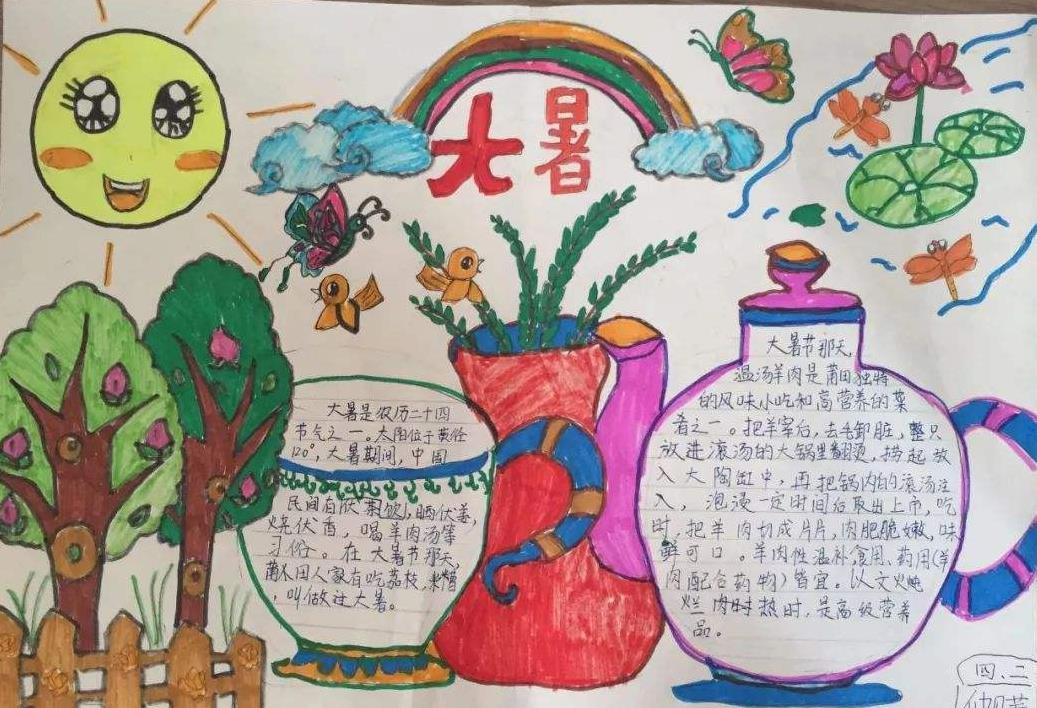 大暑
大暑是农历二十四
节气之一。太阳位于黄经
120°，大暑期间，中国
民间有饮伏茶，晒伏姜，
烧伏香，喝羊肉汤等
习俗。在大暑节那天，
莆田人家有吃荔枝，米糟
，叫做过大暑。
大暑节那天，
温汤羊肉是莆田独特
的风味小吃和高营养的菜
肴之一。把羊宰后，去毛卸脏，整只
放进滚汤的大锅里翻烫，捞起放
入大陶缸中，再把锅内的滚汤注
入，泡浸一定时间后取出上市，吃
时，把羊肉切成片片，肉肥脆嫩，味
鲜可口。羊肉性温补，食用、药用(羊
肉配合药物)皆宜。以文火炖
烂肉时热时，是高级营养
品。
四.二